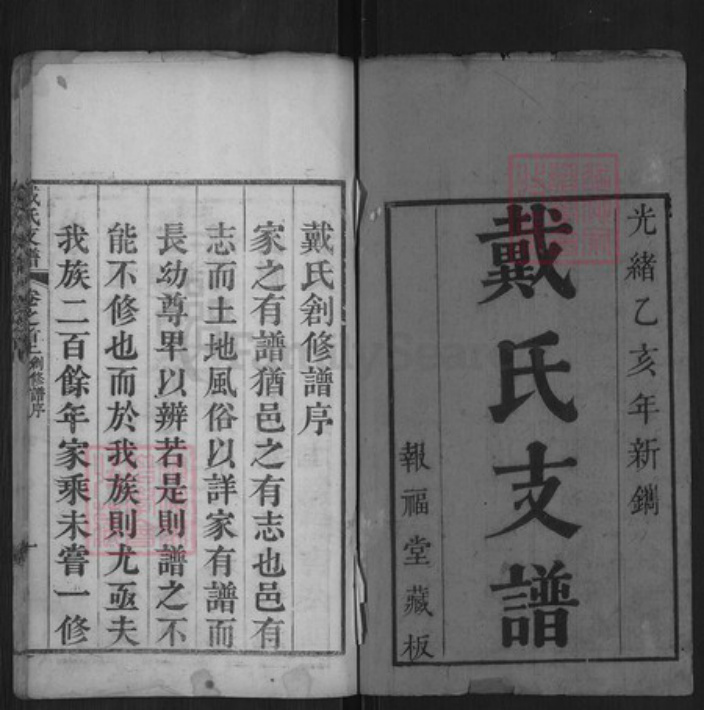 光緒乙亥年新鐫
戴氏支譜
報福堂藏板
戴氏創修譜序
家之有譜猶邑之有志也邑有
志而土地風俗以詳家有譜而
長幼尊卑以辨若是則譜之不
能不修也而於我族則尤亟夫
我族二百餘年家乘未嘗一修
戴氏支譜 卷之首 創修譜序 一